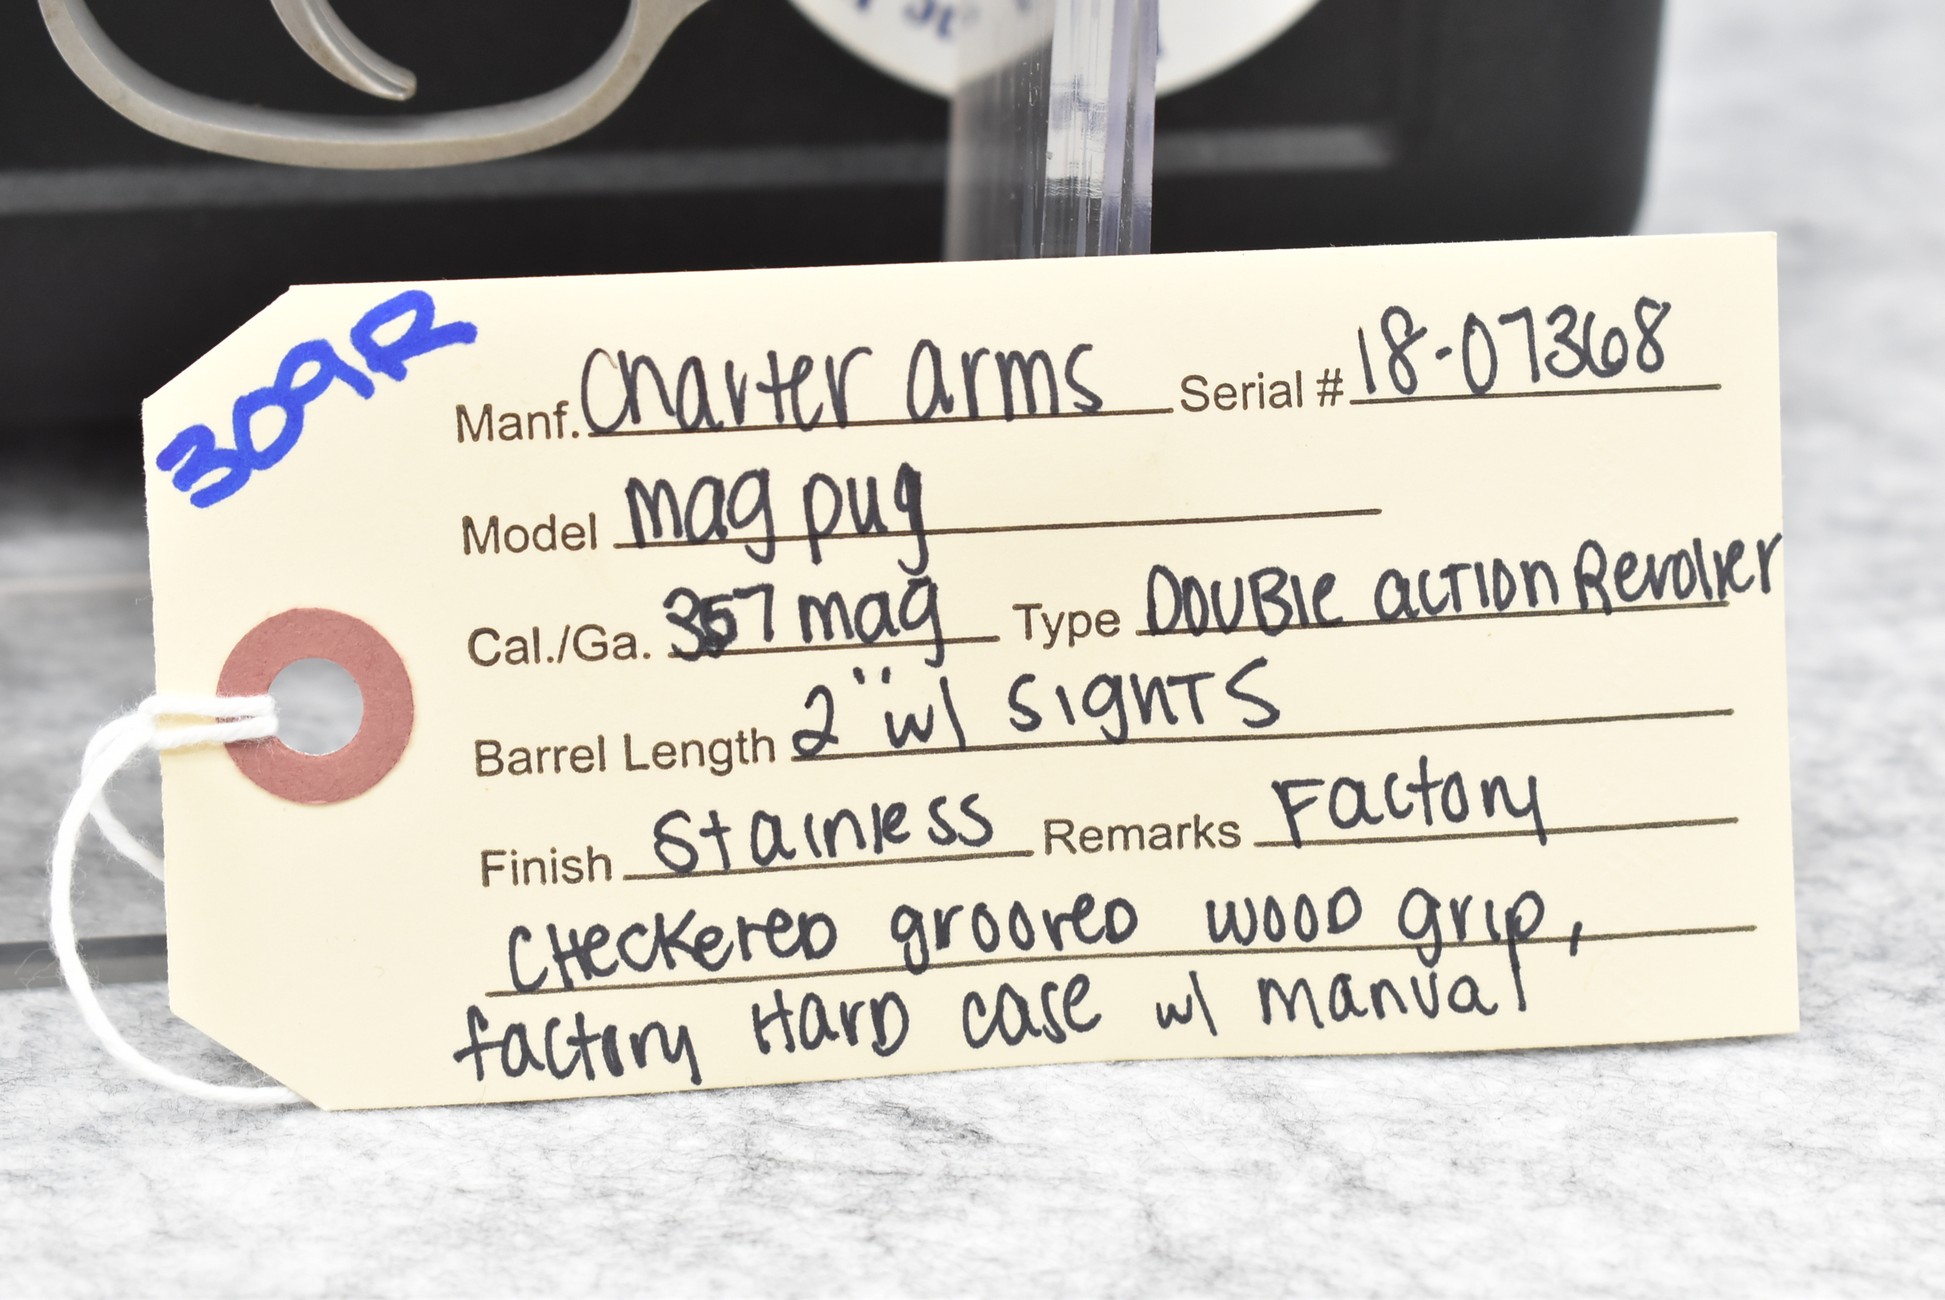 309R
Manf. Charter arms Serial # 18-07368
Model mag pug
Cal./Ga. 357 mag Type Double action Revolver
Barrel Length 2" w/ sights
Finish Stainless Remarks Factory
Checkered grooved wood grip,
factory Hard case w/ manual